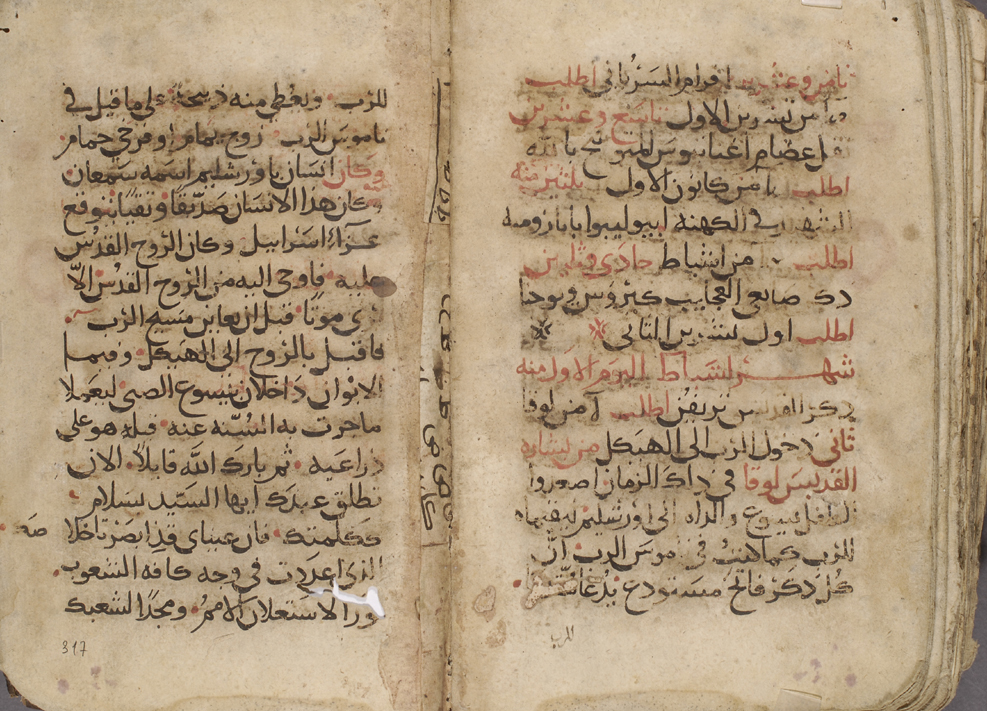 ثامن وعشرين افرام السرياني اطلب
من تشرين الاول تاسع وعشرين
اعضا اغناطيوس المتوشح بالله
اطلب من كانون الاول ثلثين منه
الشهيد في الكهنه ايبوليبوا بابا رومية
اطلب من اشباط حادي وثلثين
صانعي العجايب كيروس ويوحنا
اطلب اول تشرين الثاني
شهر اشباط اليوم الاول منه
ذكر القديس تريفن اطلب من لوقا
ثاني دخول الرب الى الهيكل من بشاره
القديس لوقا في ذاك الزمان اصعدوا
الطفل يسوع والداه الى اورشليم ليقيماه
للرب كما كتب في ناموس الرب ان
كل ذكر فاتح مستودع يدعا
الرب
للرب ويعطى منه ذبيحة على ما قيل في
ناموس الرب زوج يمام او فرخي حمام
وكان انسان باورشليم اسمه سمعان
وكان هذا الانسان صديقا وتقيا يتوقع
عزاء اسراييل وكان الروح القدس
عليه فاوحى اليه من الروح القدس الا
يرى موتا قبل ان يعاين مسيح الرب
فاقبل بالروح الى الهيكل وفيما
الابوان داخلان بيسوع الصبي ليعملا
ما جرت به السنه عنه قبله هو على
ذراعيه ثم بارك الله قايلا الان
تطلق عبدك ايها السيد بسلام
ككلمتك فان عيناي قد ابصرتا خلا
صك
الذي اعددت في وجه كافه الشعوب
نورا لاستعلان الامم ومجدا لشعبك
317